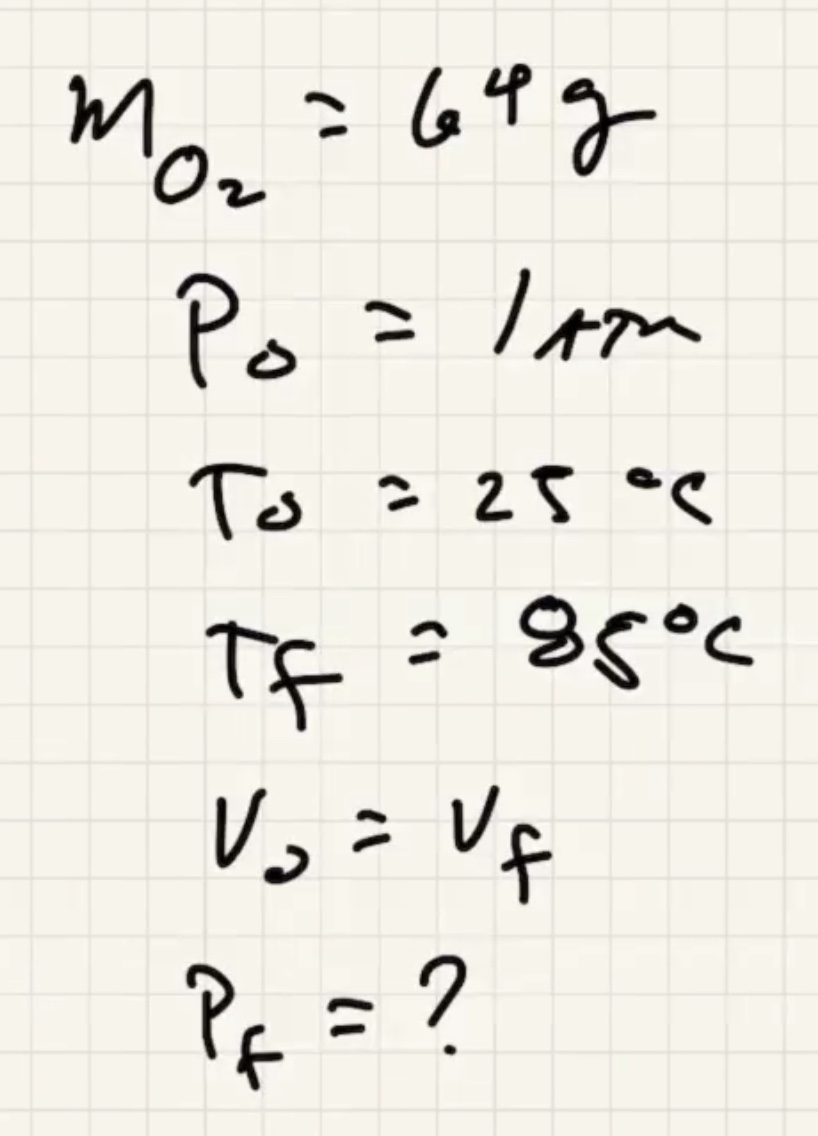 m_O₂ = 64 g
P₀ = 1 ATM
T₀ = 25 °C
T_f = 85°C
V₀ = V_f
P_f = ?